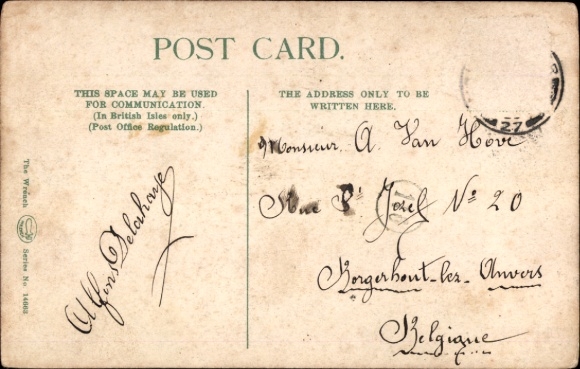 POST CARD.
THIS SPACE MAY BE USED
FOR COMMUNICATION.
(In British Isles only.)
(Post Office Regulation.)
THE ADDRESS ONLY TO BE
WRITTEN HERE.
27
Monsieur A. Van Hove
Rue St Josef No 20
Borgerhout-lez-Anvers
Belgique
Alfons Delahaye
The Wrench
Series No.